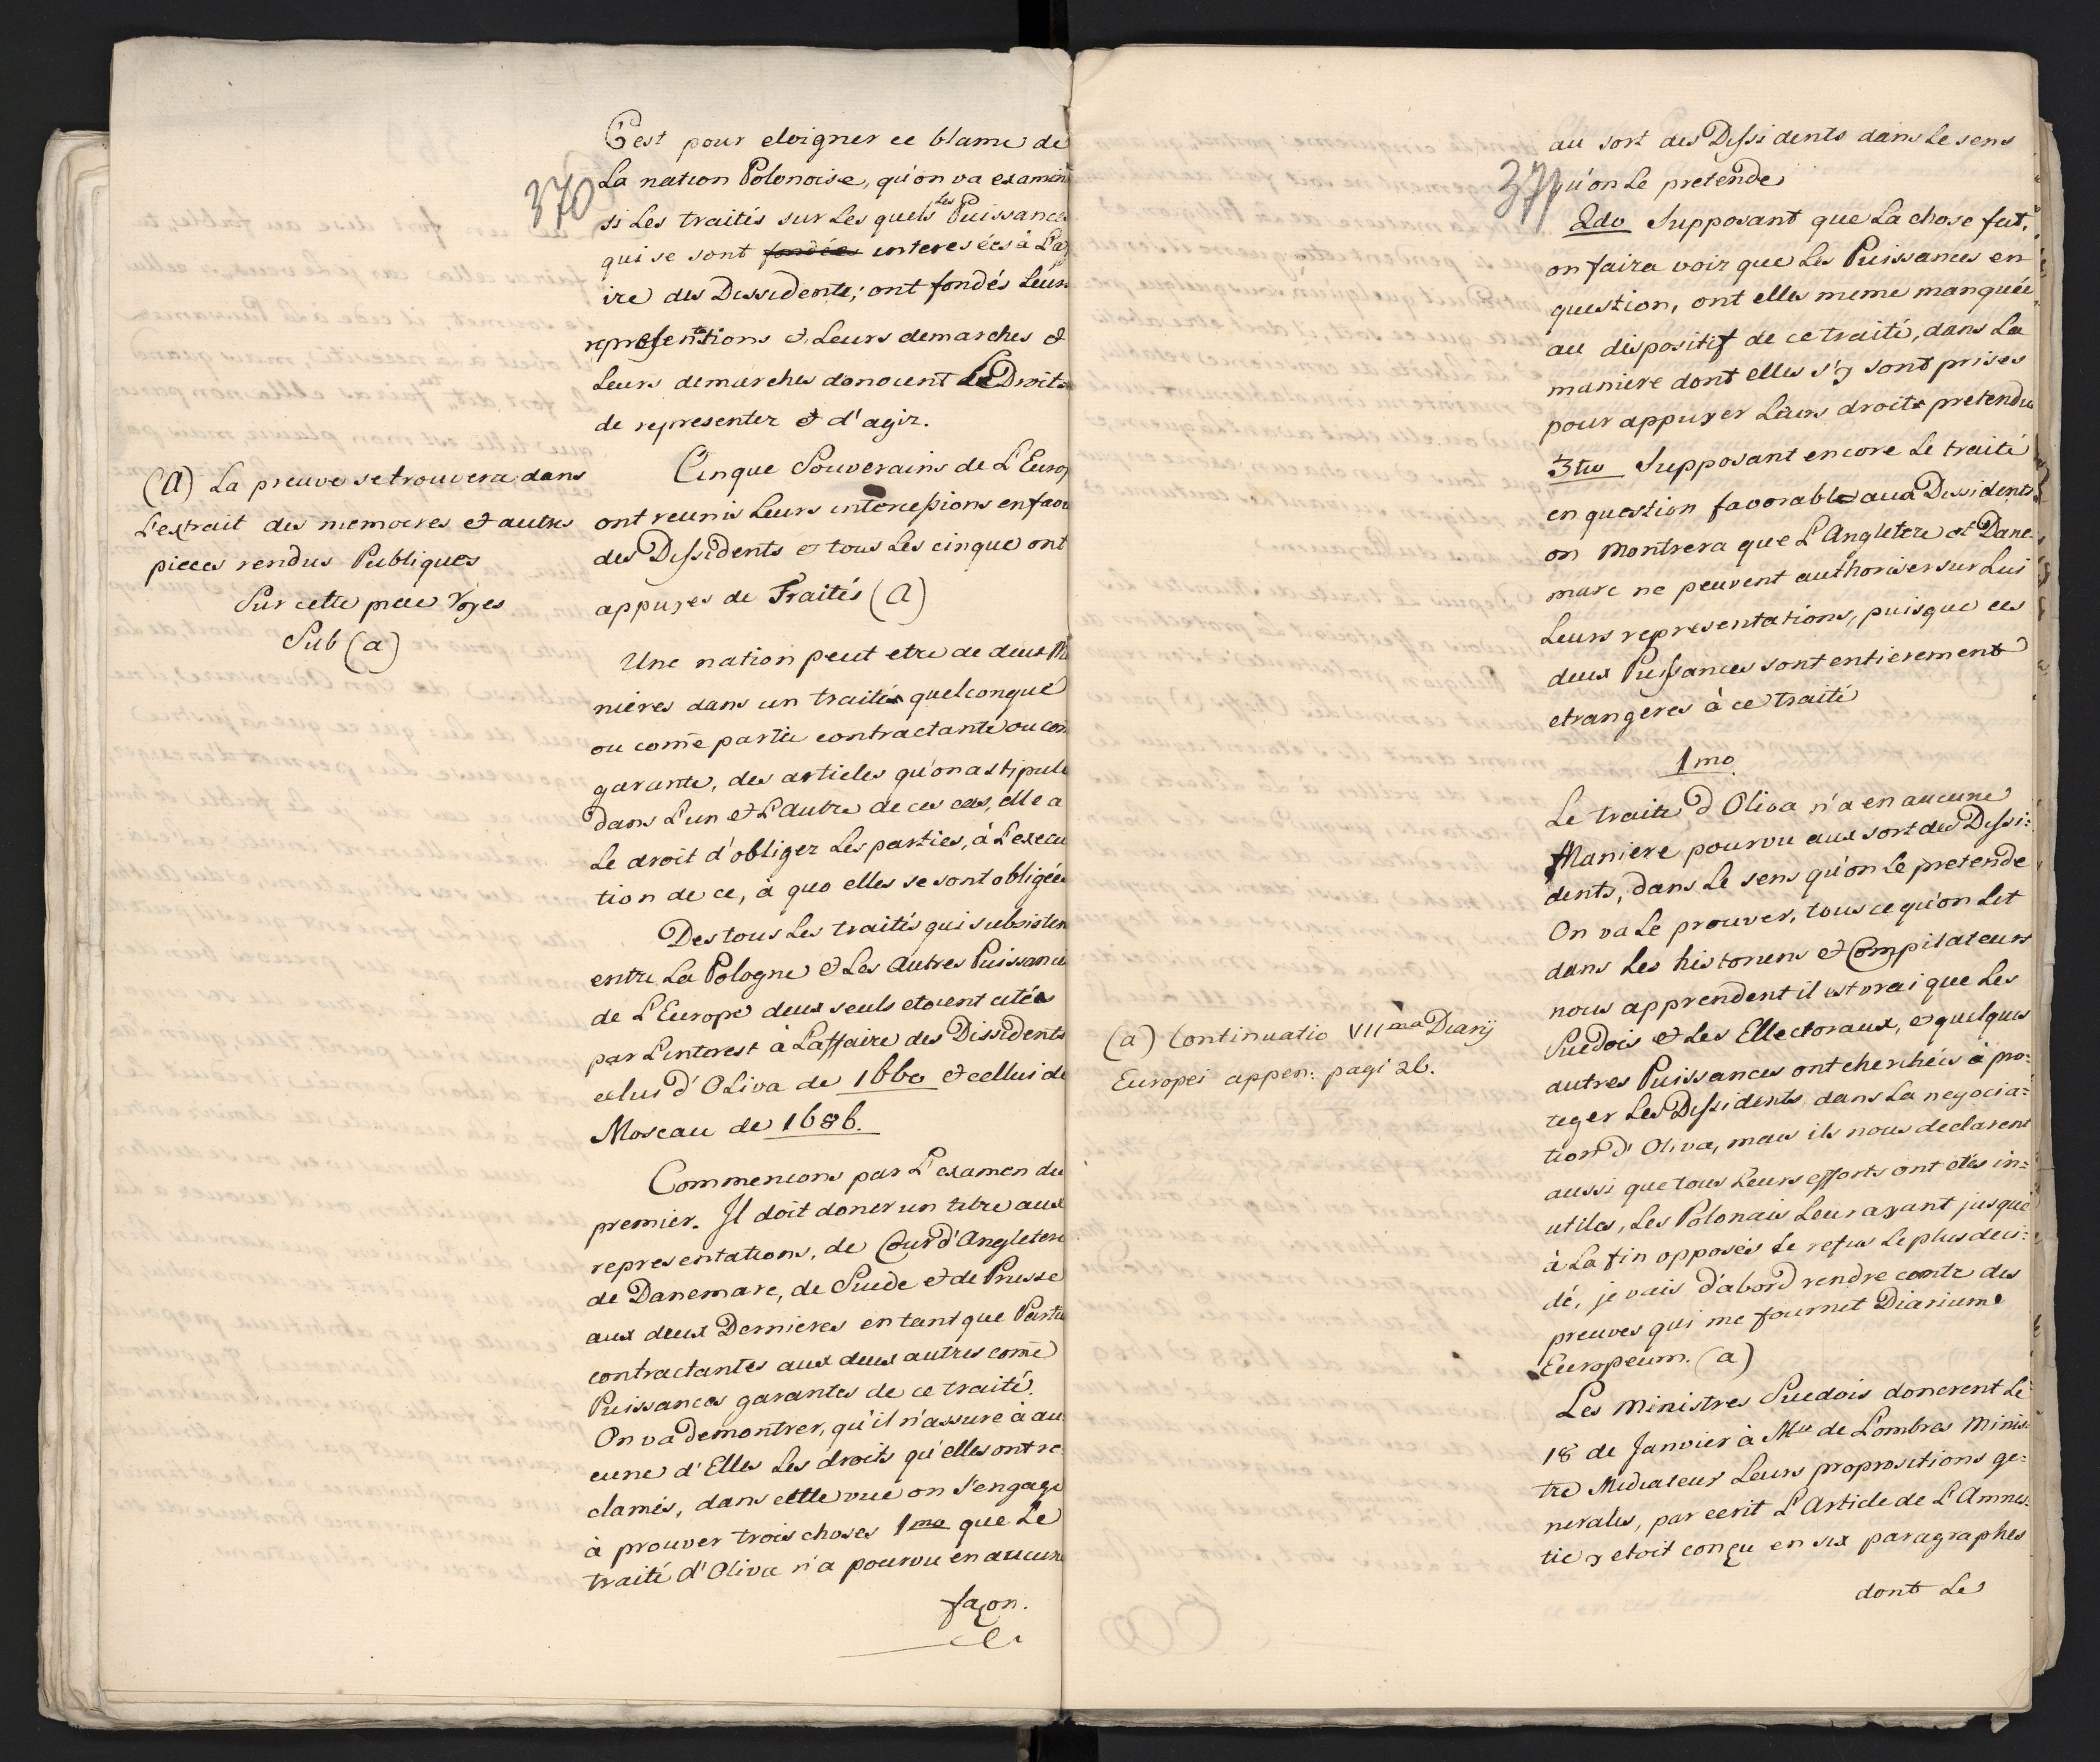 370
C'est pour eloigner ce blame de
La nation Polonoise, qu'on va examin
si Les traités sur Les quels Les Puissances
qui se sont fondées interesées à L'af
ire des Dissidents; ont fondés Leurs
representations & Leurs demarches &
Leurs demarches donoient Le Droits
de representer & d'agir.
Cinque Souverains de L'Europ
ont reunis Leurs intercessions en fave
des Dissidents & tous Les cinque ont
appuyes de Traités (A)
(A) La preuve se trouvera dans
L'extrait des memoires & autres
pieces rendus Publiques
Sur cette piece Voyes
Sub (a)
Une nation peut etre de deux Ma
nieres dans un traités quelconque
ou come partie contractante ou com
garante, des articles qu'on a stipulé
dans L'un & L'autre de ces cas, elle a
Le droit d'obliger Les parties, à L'execu
tion de ce, à quo elles se sont obligées
Des tous Les traités qui subsisten
entre La Pologne & Les Autres Puissance
de L'Europe deux seuls etoient cités
par L'interest à Laffaire des Dissidents
celui d'Oliva de 1660 & cellui de
Moscau de 1686.
Commencons par L'examen du
premier. Il doit doner un titre aux
representations, de Cour d'Angletere
de Danemarc, de Suede & de Prusse
aux deux Dernieres en tant que Partie
contractantes aux deux autres come
Puissances garantes de ce traité.
On va demontrer, qu'il n'assure à au
cune d'Elles Les droits qu'elles ont re
clamés, dans cette vue on s'engage
à prouver trois choses 1mo que Le
traité d'Oliva n'a pourvu en aucune
façon.
371
au sort des Dissidents dans Le sens
qu'on Le pretende
2do Supposant que La chose fut,
on faira voir que Les Puissances en
question, ont elles meme manquée
au dispositif de ce traité, dans La
maniere dont elles s'y sont prises
pour appuyer Leurs droits pretendus
3tio Supposant encore Le traité
en question favorable aux Dissidents
on Montrera que L'Angletere et Dane
marc ne peuvent authoriser sur Lui
Leurs representations, puisque ces
deux Puissances sont entierement
etrangeres à ce traité
1mo
Le traite d'Oliva n'a en aucune
Maniere pourvu aux sort des Dissi:
dents, dans Le sens qu'on Le pretende
On va Le prouver, tous ce qu'on Lit
dans Les historiens & Compilateurs
nous apprendent il est vrai que Les
Suedois & Les Ellectoraux, & quelques
autres Puissances ont cherchées à pro:
teger Les Dissidents dans La negocia:
tion d'Oliva, mais ils nous declarent
aussi que tous Leurs efforts ont etés in:
utiles, Les Polonais Leur ayant jusque
à La fin opposés Le refus Le plus deci:
dé, je vais d'abord rendre conte des
preuves qui me fournit Diarium
Europeum. (a)
(a) Continuatio VIIma Diarij
Europei appen: pagi 26.
Les Ministres Suedois donerent Le
18 de Janvier à Mr de Lombres Minis:
tre Mediateur Leurs propositions ge:
nerales, par ecrit L'Article de L'Amnes:
tie y etoit conçu en six paragraphes
dont Le